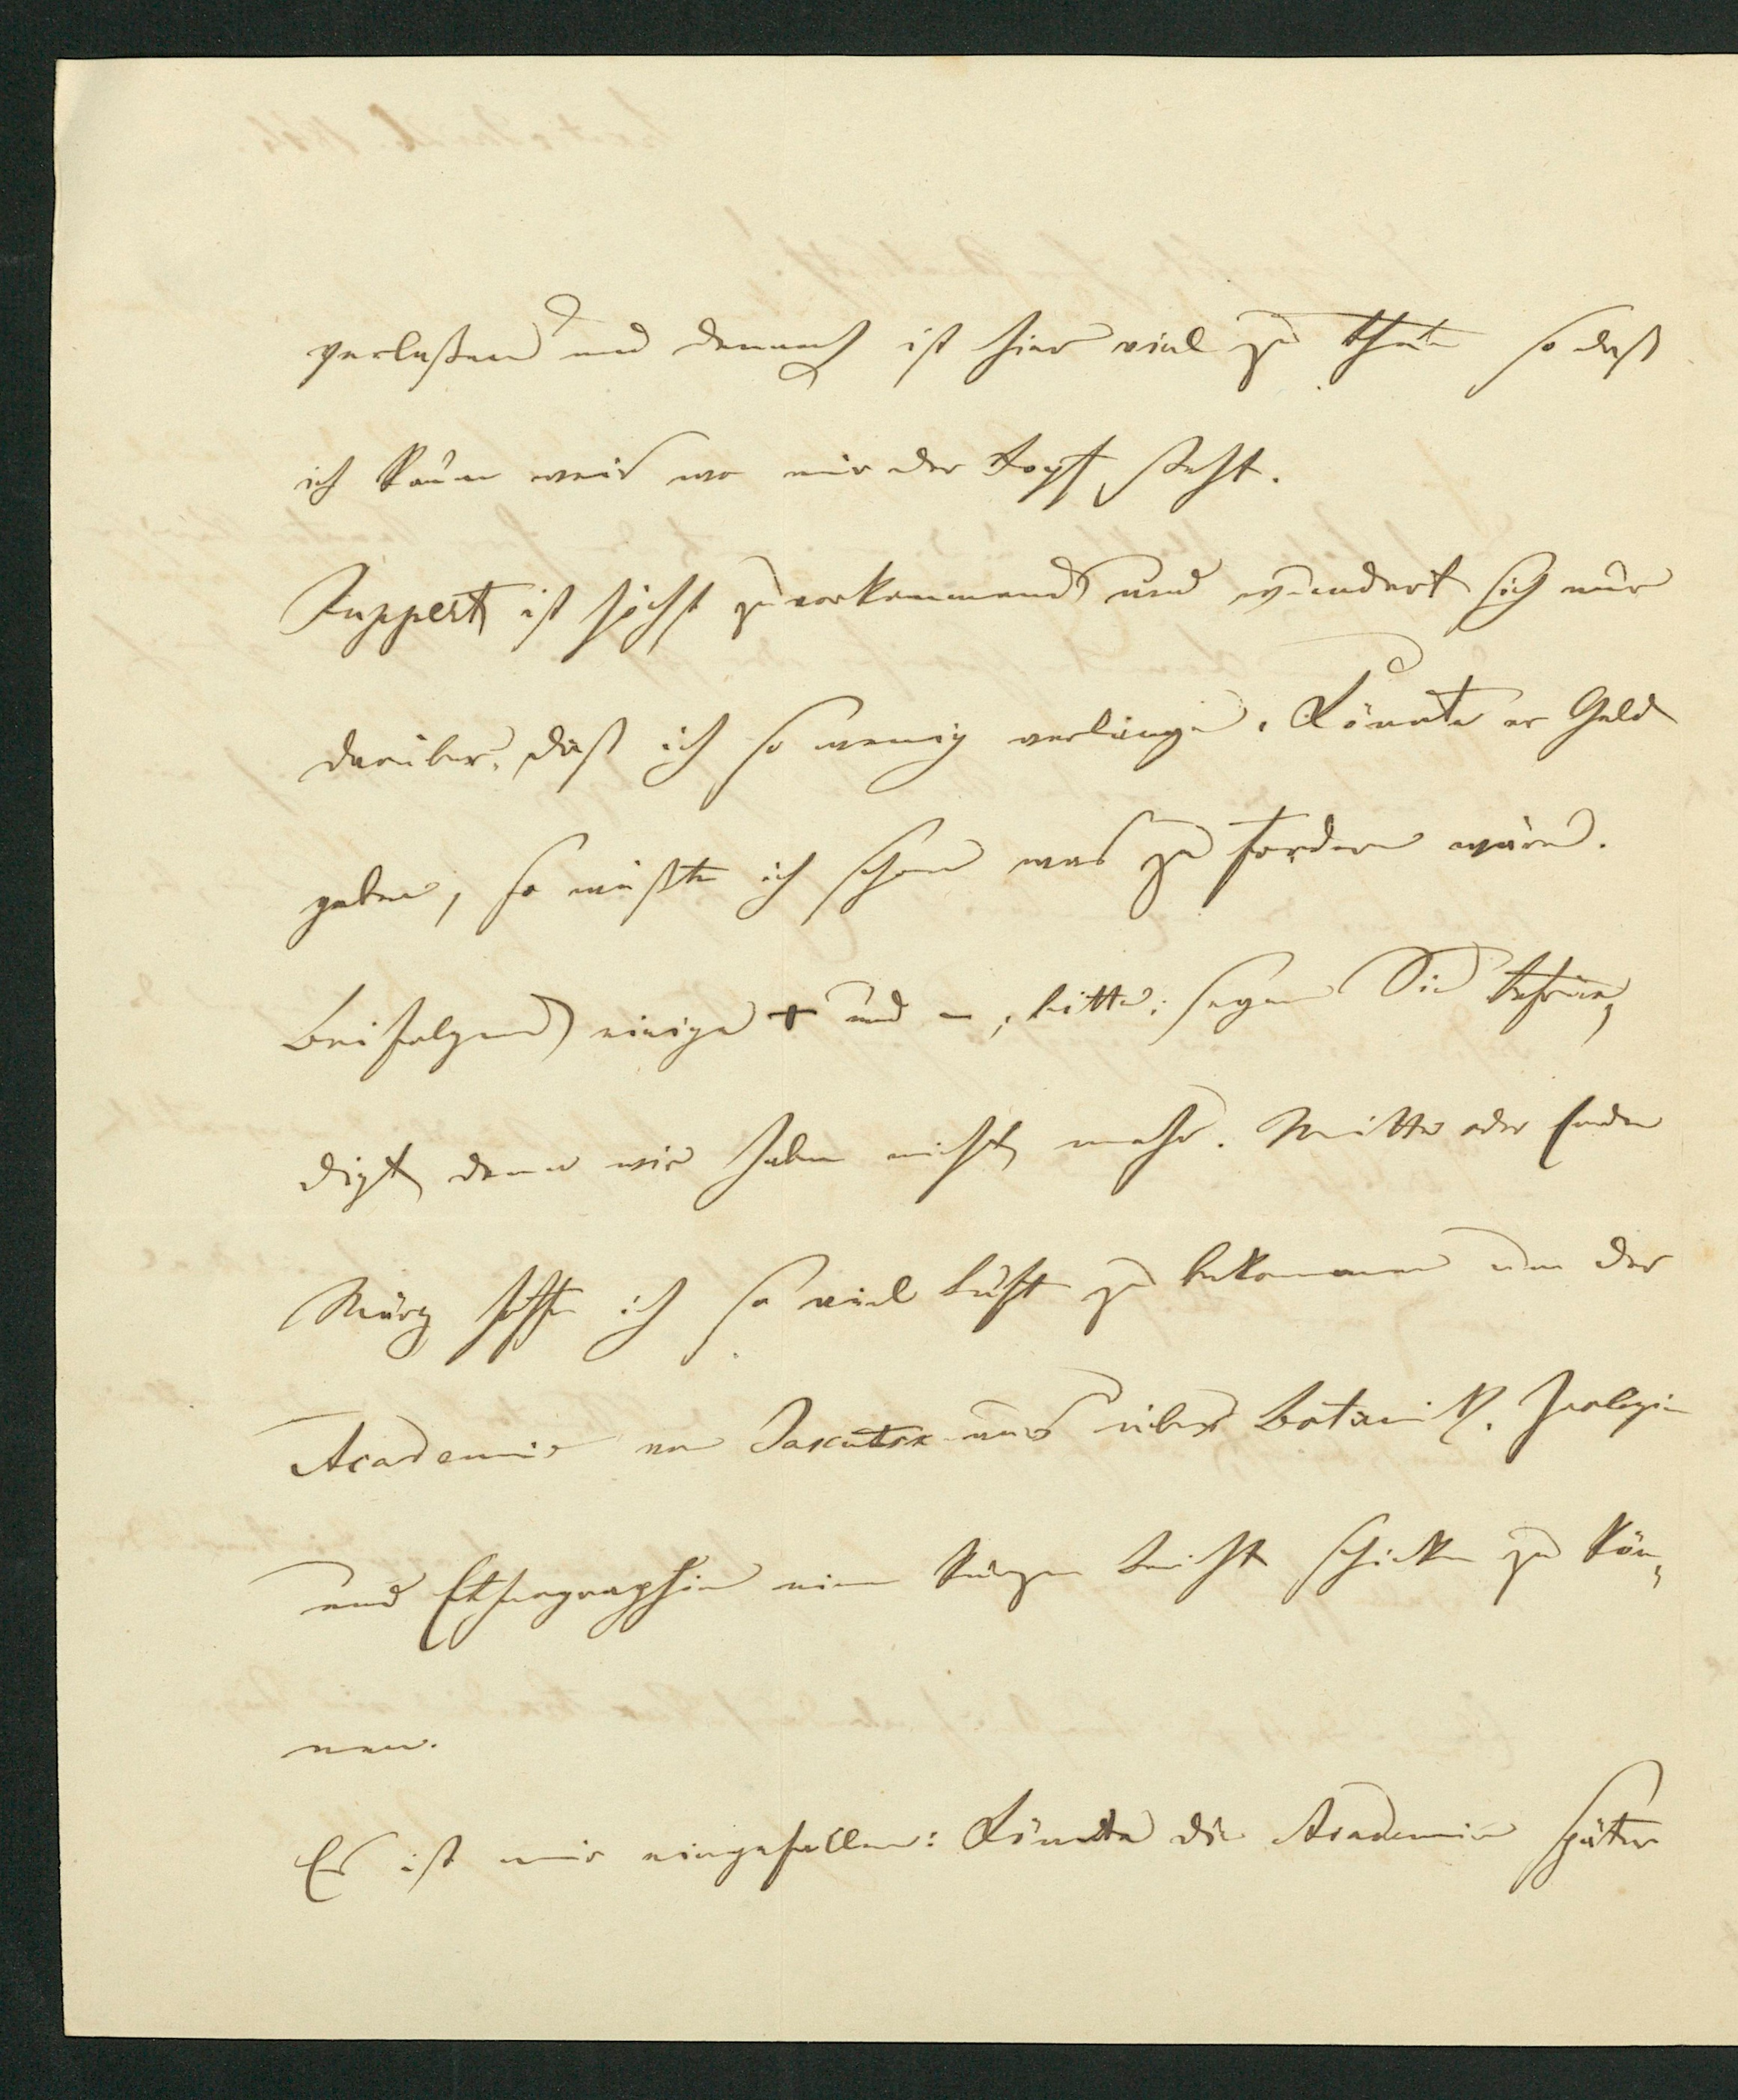 verlaßen und dennoch ist hier viel zu thun so daß
ich kaum weis wo mir der Kopf steht.
Ruppert ist höchst zuvorkommend und wundert sich nur
darüber, daß ich so wenig verlange. Könnte er Geld
geben, so wüßte ich schon was zu fordern wäre.
Beifolgend einige + und –, bitte: sagen Sie befrie,
digt denn wir haben nicht mehr. Mitte oder Ende
März hoffe ich so viel Luft zu bekommen um der
Academie von Jakutsk aus über Botanik, Zoologie
und Ethnographie einen kurzen Bericht schicken zu kön,
nen.
Es ist mir eingefallen: Könnte die Academie später